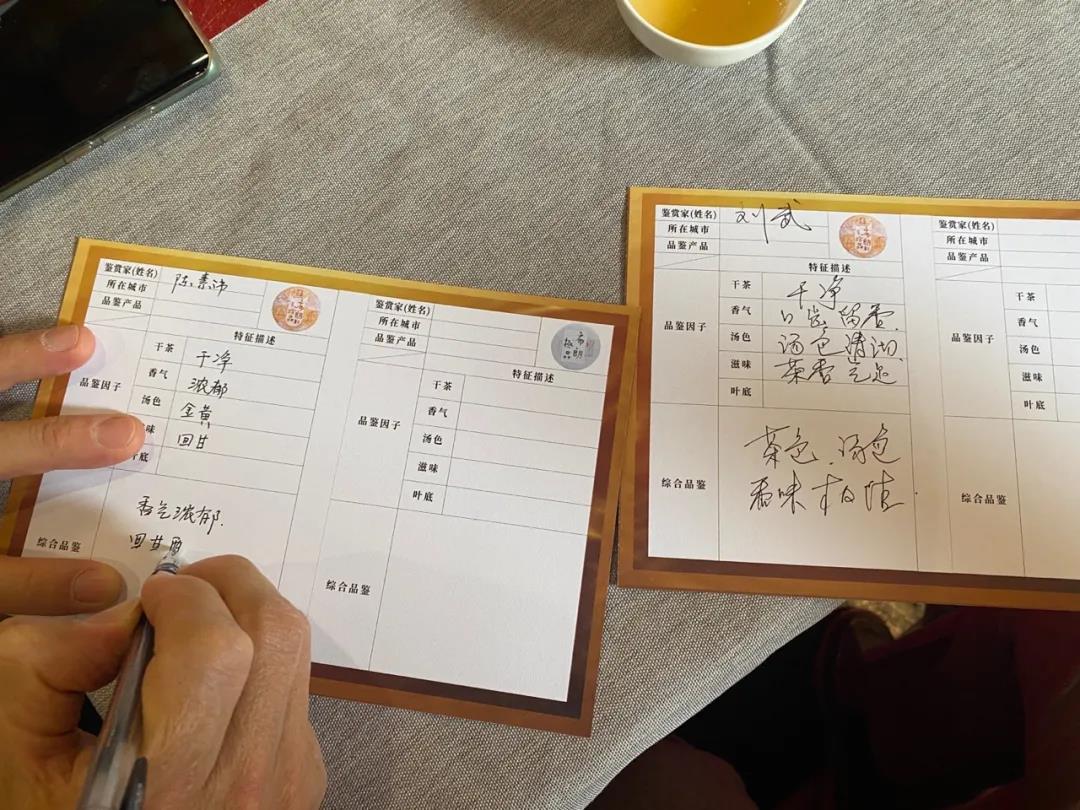 鉴赏家(姓名) 陈素沛
所在城市
品鉴产品
特征描述
品鉴因子
干茶 干净
香气 浓郁
汤色 金黄
味 回甘
叶底
综合品鉴
香气浓郁.
回甘
鉴赏家(姓名)
所在城市
品鉴产品
特征描述
品鉴因子
干茶
香气
汤色
滋味
叶底
综合品鉴
鉴赏家(姓名) 刘武
所在城市
品鉴产品
特征描述
品鉴因子
干茶 干净
香气 口瓷留香.
汤色 汤色清沏
滋味 茶香气足
叶底
综合品鉴
茶色.汤色
香味
鉴赏家(姓名)
所在城市
品鉴产品
品鉴因子
干茶
香气
汤色
滋味
叶底
综合品鉴